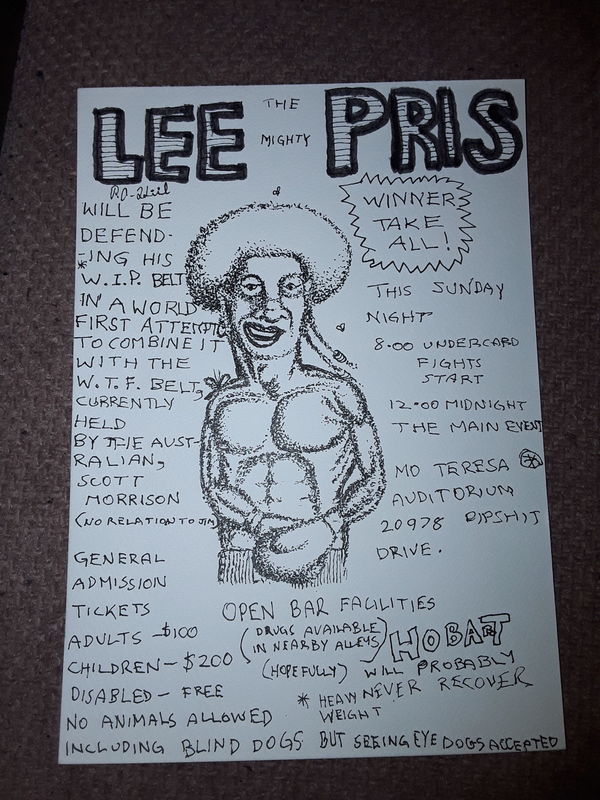 LEE THE MIGHTY PRIS
WILL BE
DEFEND-
-ING HIS
* W.I.P. BELT
IN A WORLD
FIRST ATTEMPT
TO COMBINE IT
WITH THE
W.T.F. BELT,
CURRENTLY
HELD
BY THE AUST-
RALIAN,
SCOTT
MORRISON
(NO RELATION TO JIM)
WINNER
TAKE
ALL!
THIS SUNDAY
NIGHT
8.00 UNDERCARD
FIGHTS
START
12.00 MIDNIGHT
THE MAIN EVENT
MO TERESA
AUDITORIUM
20978 DIPSHIT
DRIVE.
GENERAL
ADMISSION
TICKETS
ADULTS - $100
CHILDREN - $200
DISABLED - FREE
NO ANIMALS ALLOWED
INCLUDING BLIND DOGS BUT SEEING EYE DOGS ACCEPTED
OPEN BAR FACILITIES
(DRUGS AVAILABLE
IN NEARBY ALLEYS)
(HOPEFULLY)
* HEAVY
WEIGHT
HOBART
WILL PROBABLY
NEVER RECOVER